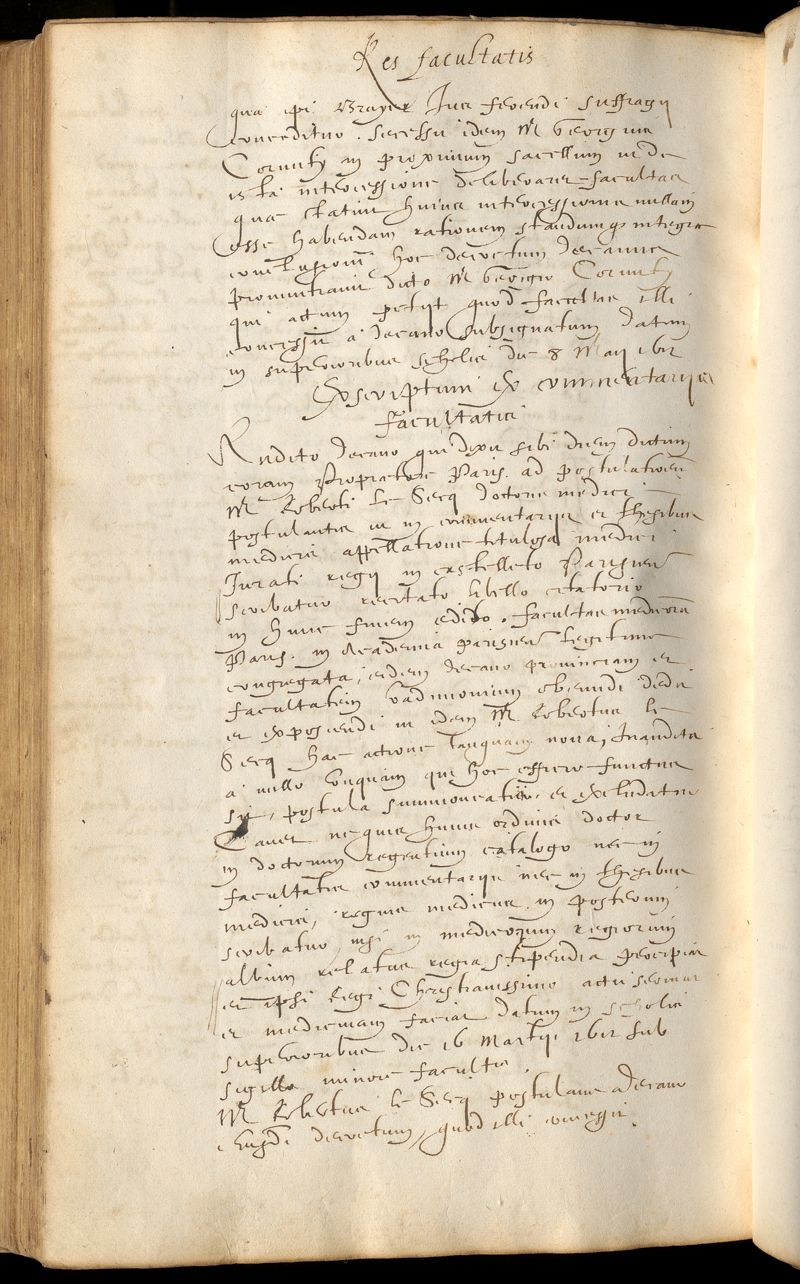 Res facultatis
qua ipi Brayer Jus ferendi suffragii
conceditur. secessit idem M Georgius
Cornuty in proximum sacellum ut de
ista intercessione deliberaret facultas
quae statim huius intercessionis nullam
esse habendam rationem standumq integre
conclusioni, hoc decretum decanus
pronuntiavit dicto M Georgio Cornuty
qui actum petyt quod facultas illi
concessit a decano subsignatum datum
in superioribus scholis die 8 Maii 1612
Exscriptum ex commentariis
facultatis
Audito decano qui dixit sibi diem dictum
coram Propraetore Paris. ad postulationem
M Roberti le Secq doctoris medici
postulantis ut in commentariis et thesibus
medicis appellatione titulosa medici
Jurati regii in castelleto Parisiensi
scribatur recitato libello citatorio
in hunc finem edito. facultas medicorum
Paris. in Academia parisiensi legitime
congregata, eidem decano provinciam et
facultatem vadimonium obeundi dedit
et exposcendi ut idem M Robertus le
Secq hac actione tanquam nova, Inaudita
a nullo unquam qui hoc officio functus
sit, postula summoveatur et excludatur
Cavet ne quis huius ordinis doctor
in doctorum regentium catalogo nec in
facultatis commentariis nec in thesibus
medicis, regius medicus in posterum
scribatur, nisi in medicorum regiorum
album relatus regia stipendia percipiat
et ipsi Regi Christianissimo actu serviat
et medicinam faciat datum in scholis
superioribus die 16 Martii 1612 sub
sigillo minore facultis.
M Robertus le Secq postulavit a decano
decretum, quod illi concessit